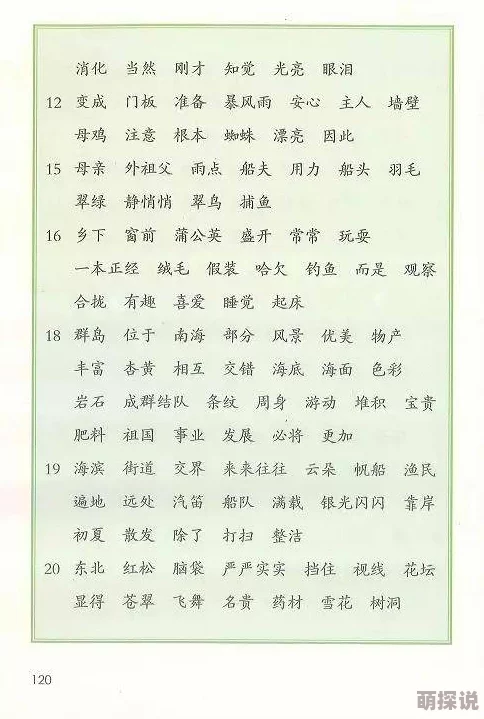 消化 当然 刚才 知觉 光亮 眼泪
12 变成 门板 准备 暴风雨 安心 主人 墙壁
母鸡 注意 根本 蜘蛛 漂亮 因此
15 母亲 外祖父 雨点 船夫 用力 船头 羽毛
翠绿 静悄悄 翠鸟 捕鱼
16 乡下 窗前 蒲公英 盛开 常常 玩耍
一本正经 绒毛 假装 哈欠 钓鱼 而是 观察
合拢 有趣 喜爱 睡觉 起床
18 群岛 位于 南海 部分 风景 优美 物产
丰富 杏黄 相互 交错 海底 海面 色彩
岩石 成群结队 条纹 周身 游动 堆积 宝贵
肥料 祖国 事业 发展 必将 更加
19 海滨 街道 交界 来来往往 云朵 帆船 渔民
遍地 远处 汽笛 船队 满载 银光闪闪 靠岸
初夏 散发 除了 打扫 整洁
20 东北 红松 脑袋 严严实实 挡住 视线 花坛
显得 苍翠 飞舞 名贵 药材 雪花 树洞
120
萌探说